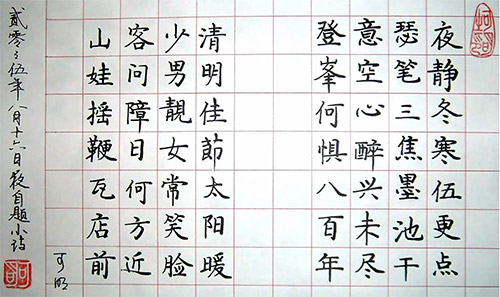 夜静冬寒伍更点
瑟笔三焦墨池干
意空心醉兴未尽
登峯何惧八百年
清明佳莭太阳暖
少男靓女常笑脸
客问障日何方近
山娃摇鞭瓦店前
贰零零伍年八月十六日夜自题小诗